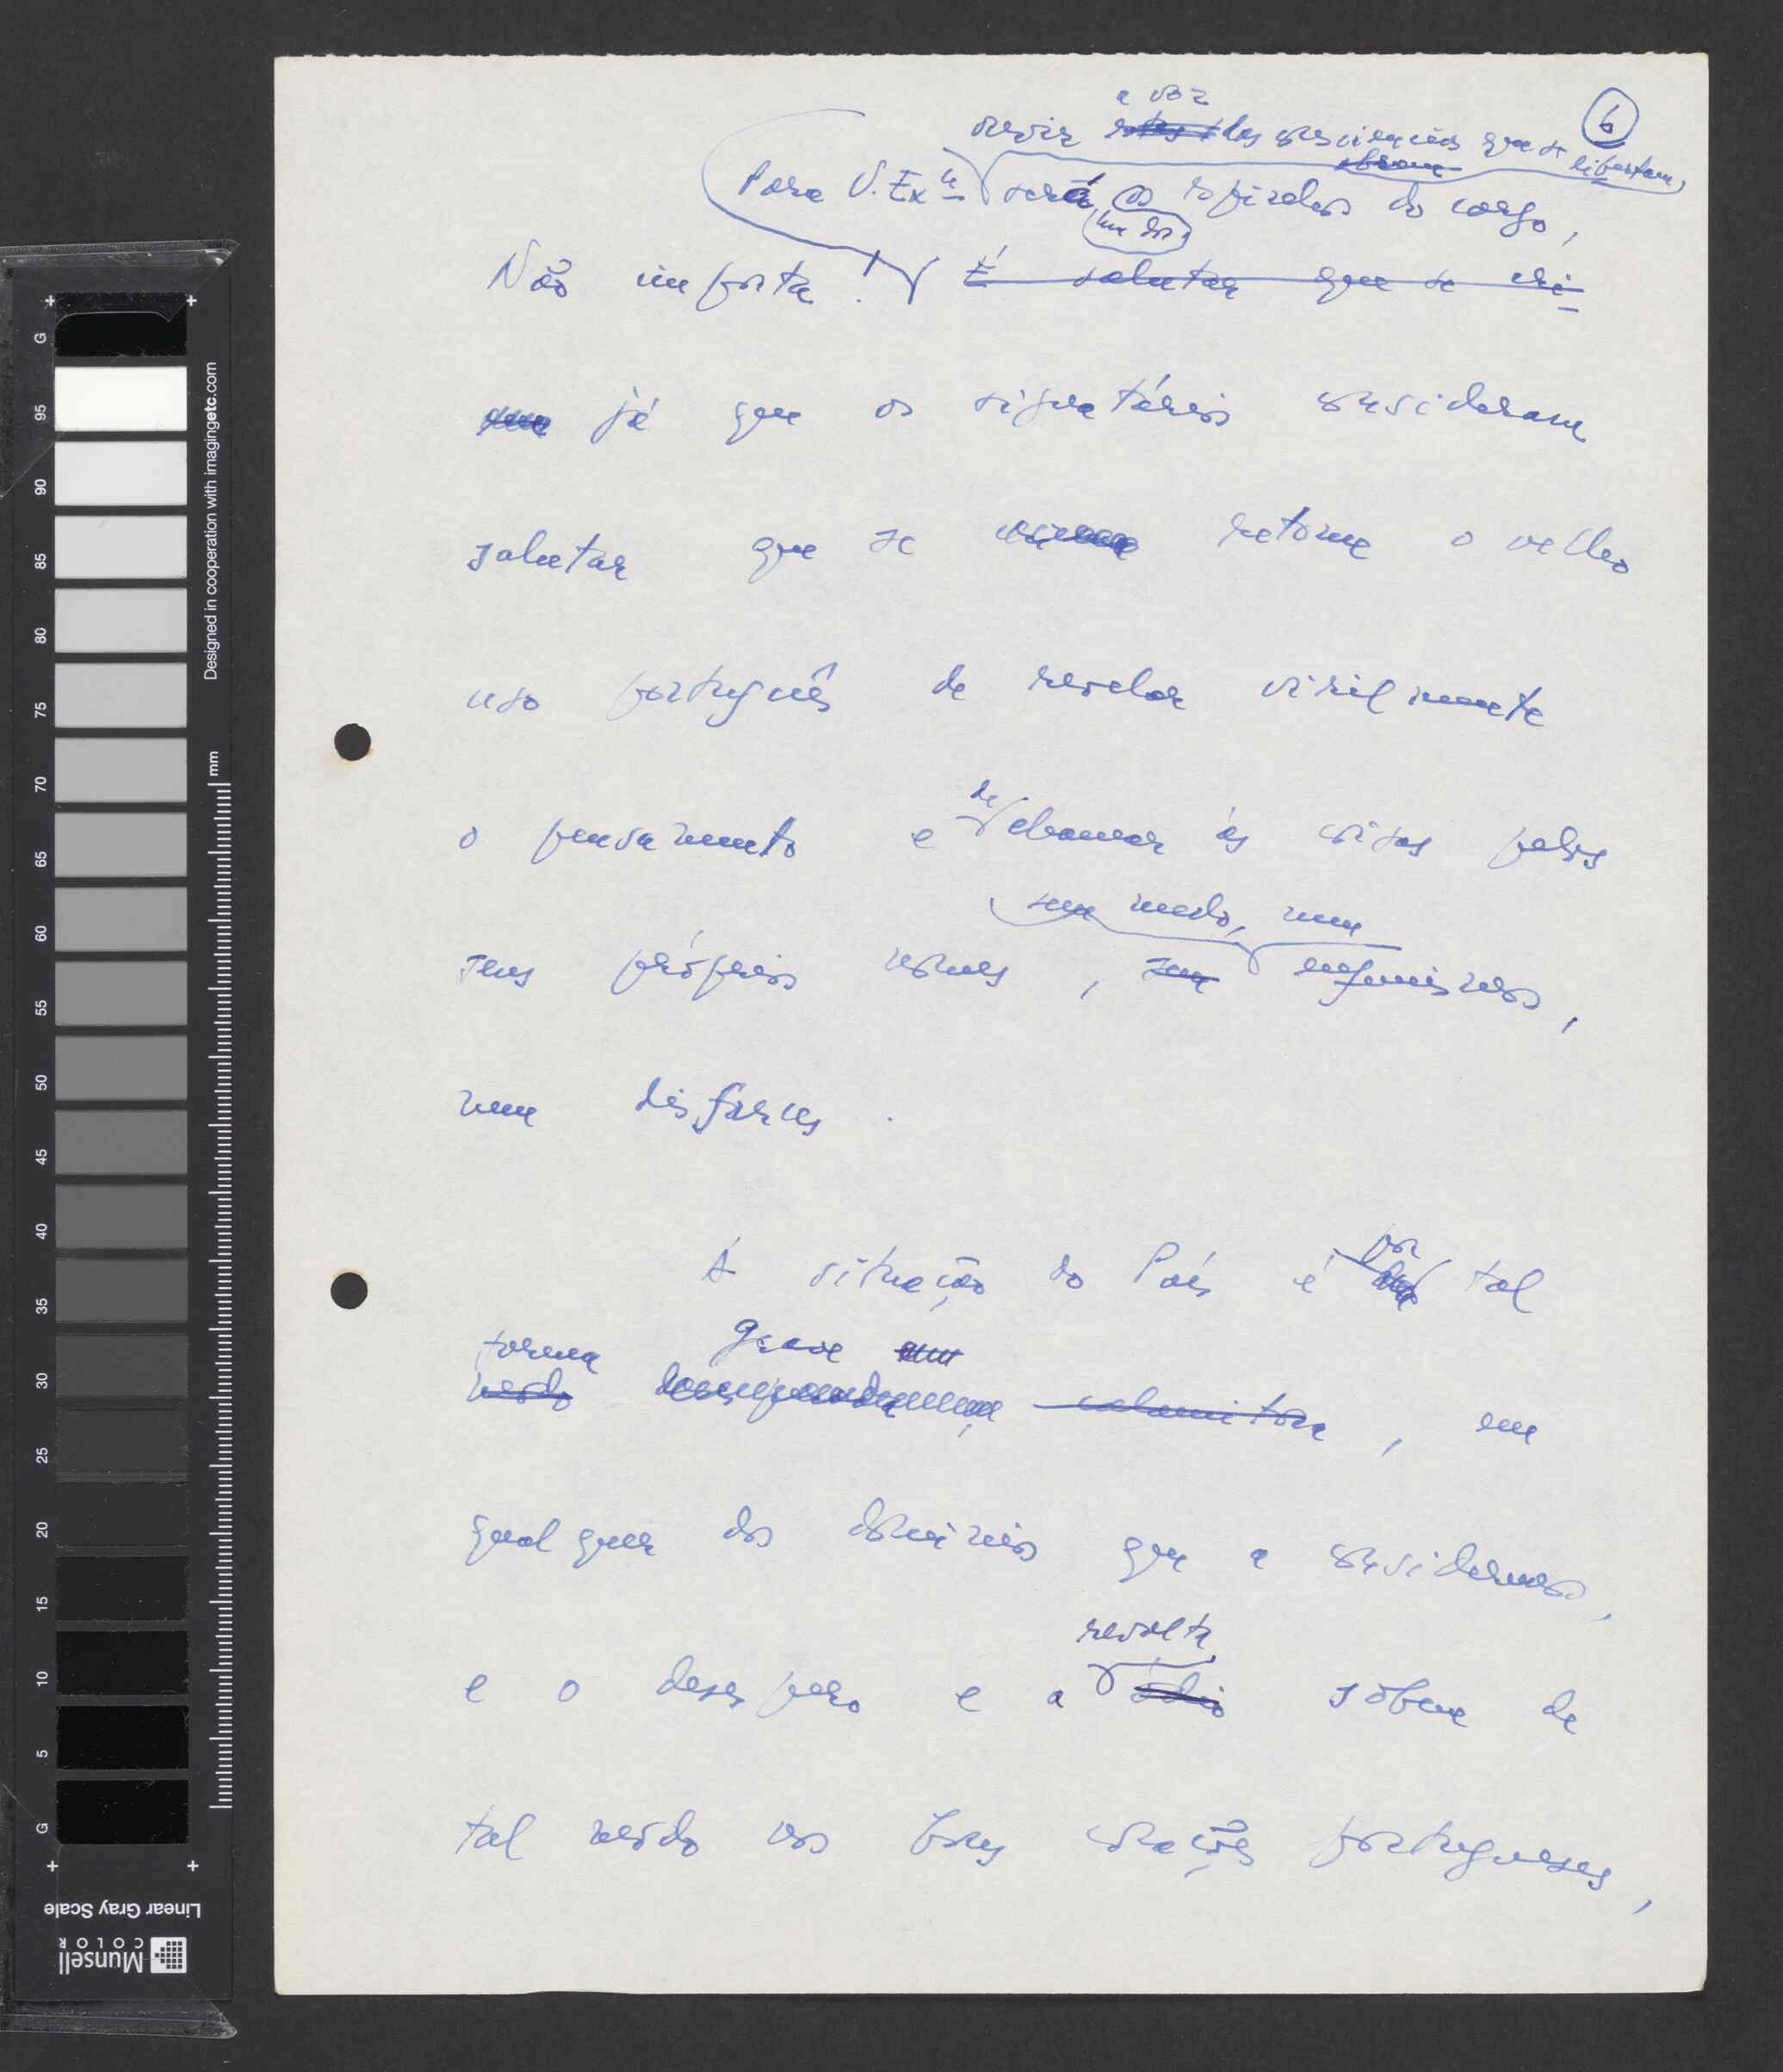 6
a voz
ouvir das consciências que se libertam,
abrem
Para V. Exª será os espinhos do cargo,
um dos
Não importa! É salutar que se cri-
já que os signatários consideram
salutar que se retome o velho
uso português de revelar virilmente
de
o pensamento e chamar às coisas pelos
sem medo, nem
seus próprios nomes, sem eufemismos,
nem disfarces.
A situação do País é por tal
forma grave
modo calamitosa, em
qualquer dos domínios que a consideremos,
revolta
e o desespero e a ódio sobem de
tal modo nos bons corações portugueses,
G
95
90
85
80
75
70
65
60
55
50
45
40
35
30
25
20
15
10
5
G
mm
Designed in cooperation with imagingetc.com
Linear Gray Scale
Munsell
COLOR